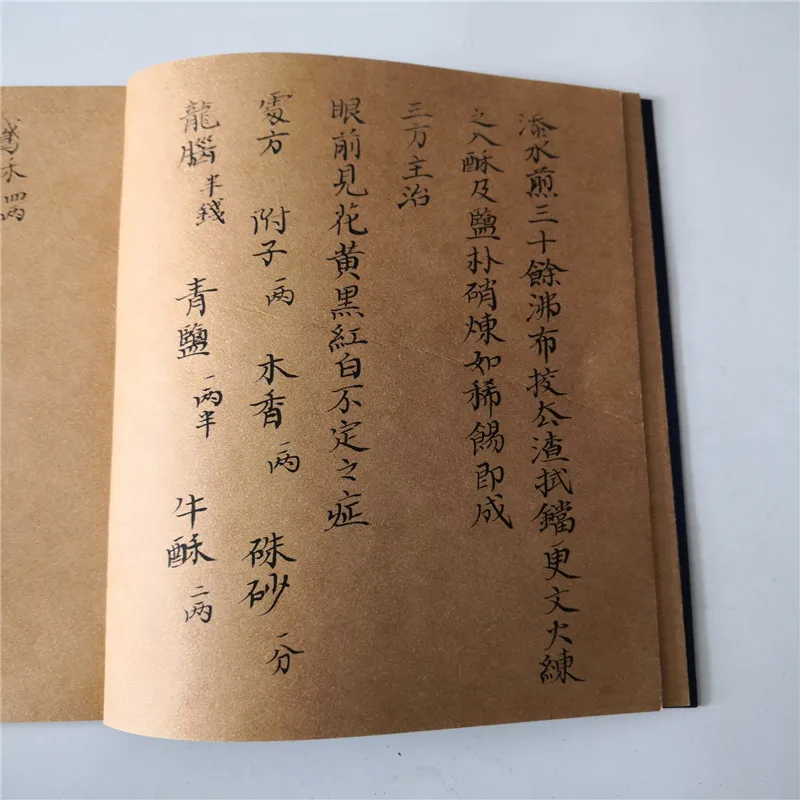 添水煎三十餘沸布挍去渣拭鐺更文火練
之入酥及鹽朴硝煉如稀餳即成
三方主治
眼前見花黃黑紅白不定之症
處方 附子 一两 木香 一两 硃砂 一分
龍腦 半錢 青鹽 一两半 牛酥 二两
鵞禾 四两